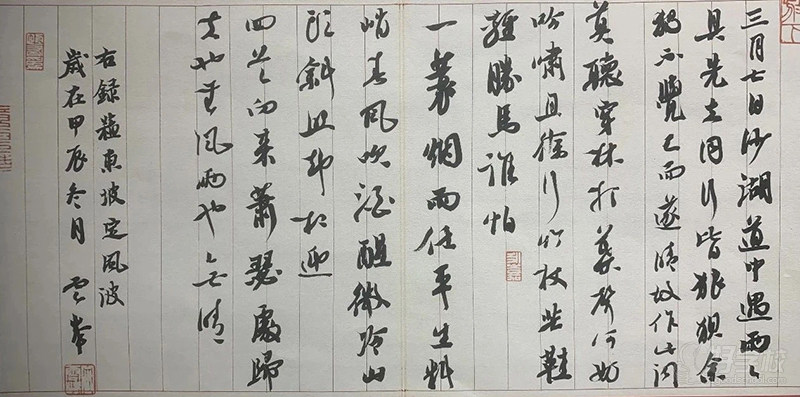 三月七日沙湖道中遇雨々
具先去同行皆狼狽余
独不覺已而遂晴故作此词
莫聽穿林打葉聲何妨
吟嘯且徐行竹杖芒鞋
輕勝馬誰怕
一蓑烟雨任平生料
峭春風吹酒醒微冷山
頭斜照却相迎
回首向来蕭瑟處歸
去也無風雨也無晴
右録蘇東坡定風波
歲在甲辰冬月 雲峯